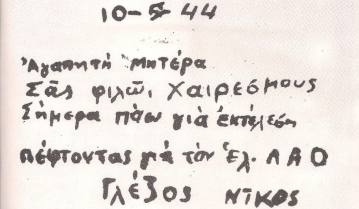 10-5-44
Ἀγαπητή Μητέρα
Σᾶς φιλῶ, Χαιρεσμους
Σήμερα πάω γιὰ ἐκτέλεση
πέφτοντας γιὰ τὸν Ἑλ. ΛΑΟ
Γλέζος ΝΙΚΟΣ